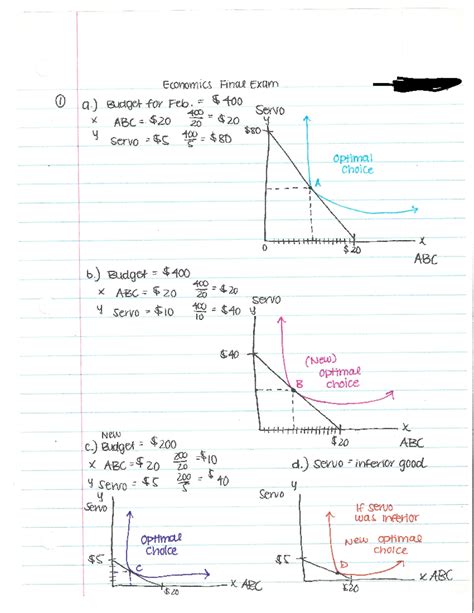 Economics Final Exam
① a.) Budget for Feb. = $400
x ABC = $20 400/20 = $20
y Servo = $5 400/5 = $80
Servo
y
$80
Optimal
choice
A
0
$20
x
ABC
b.) Budget = $400
x ABC = $20 400/20 = $20
y Servo = $10 400/10 = $40
Servo
y
$40
(New)
optimal
choice
B
$20
x
ABC
New
c.) Budget = $200
x ABC = $20 200/20 = $10
y Servo = $5 200/5 = $40
y
Servo
$5
Optimal
choice
C
$20
x ABC
d.) Servo = inferior good
y
Servo
$5
If servo
was inferior
New optimal
choice
D
$20
x ABC